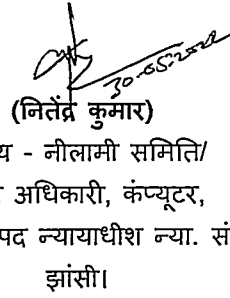 30-05-2022
(नितेंद्र कुमार)
य - नीलामी समिति/
अधिकारी, कंप्यूटर,
पद न्यायाधीश न्या. सं
झांसी।